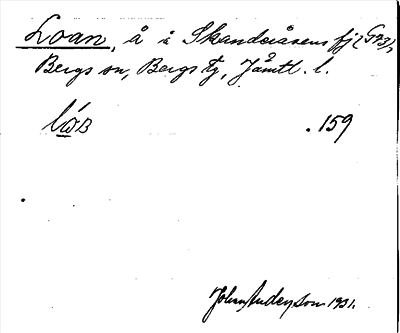 Loan, å i Skanderåsens fj. (593),
Bergs sn, Bergs tg, Jämtl. l.
.159
Johan Anderson 1931.